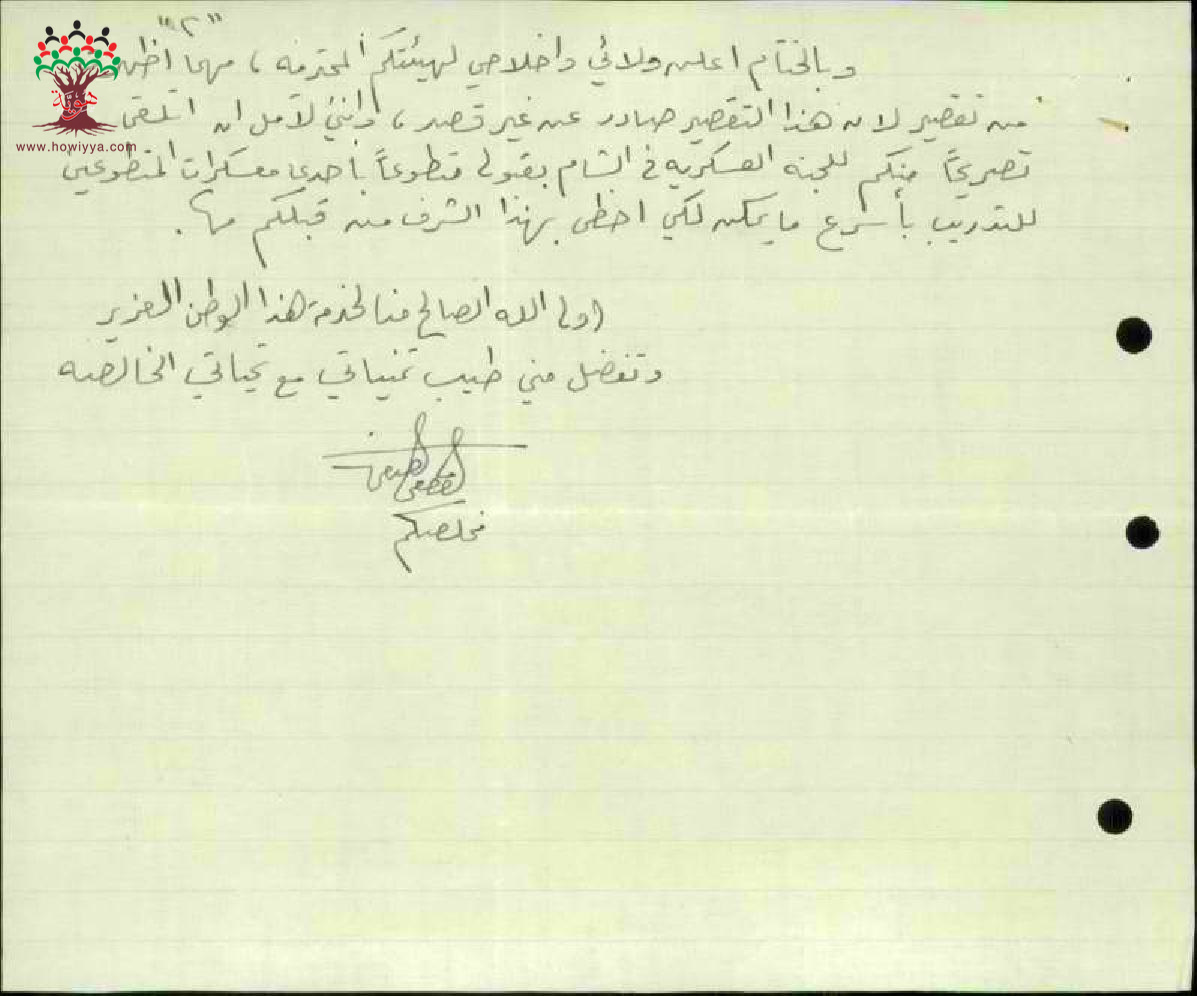 "٢"
هوية
www.howiyya.com
وبالختام اعلن ولائي واخلاصي لهيئتكم المحترمه ، مهما اظهرت
من تقصير لان هذا التقصير صادر عن غير قصد ، وانني لآمل ان اتلقى
تصريحاً منكم للجنه العسكريه في الشام بقبولي متطوعاً بأحدى معسكرات المتطوعين
للتدريب بأسرع ما يمكن لكي احظى بهذا الشرف من قبلكم
الله الصالح منا لخدمة هذا الوطن العزيز
وتفضل مني طيب تمنياتي مع تحياتي الخالصه
مخلصكم